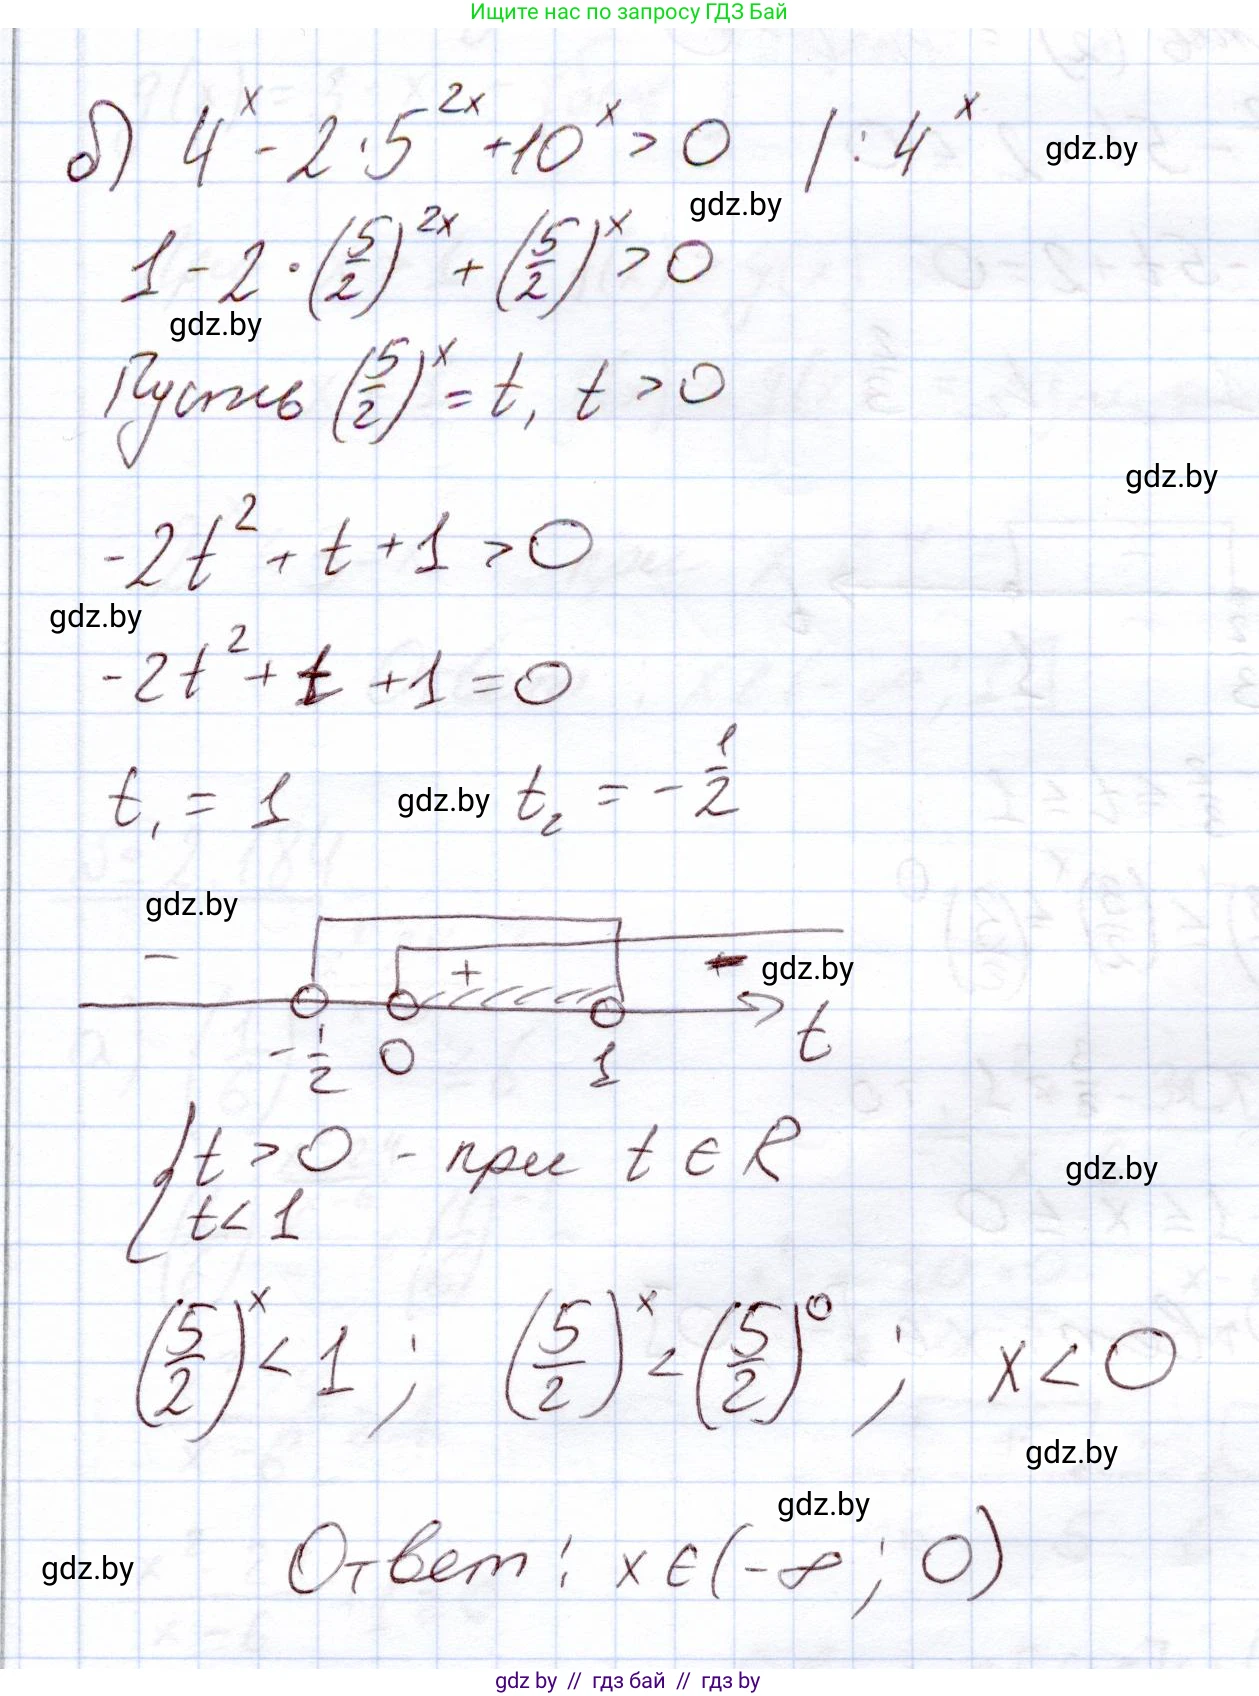 Ищите нас по запросу ГДЗ Бай
б) 4^x - 2·5^{2x} + 10^x > 0 | : 4^x
gdz.by
gdz.by
1 - 2·(5/2)^{2x} + (5/2)^x > 0
gdz.by
Пусть (5/2)^x = t, t > 0
gdz.by
-2t^2 + t + 1 > 0
gdz.by
-2t^2 + t + 1 = 0
t_1 = 1 gdz.by t_2 = -1/2
gdz.by
- + - gdz.by
-1/2 0 1 t
{ t > 0 - при t ∈ R
t < 1
gdz.by
(5/2)^x < 1 ; (5/2)^x < (5/2)^0 ; x < 0
gdz.by
gdz.by
Ответ: x ∈ (-∞; 0)
gdz.by
gdz.by // гдз бай // гдз by